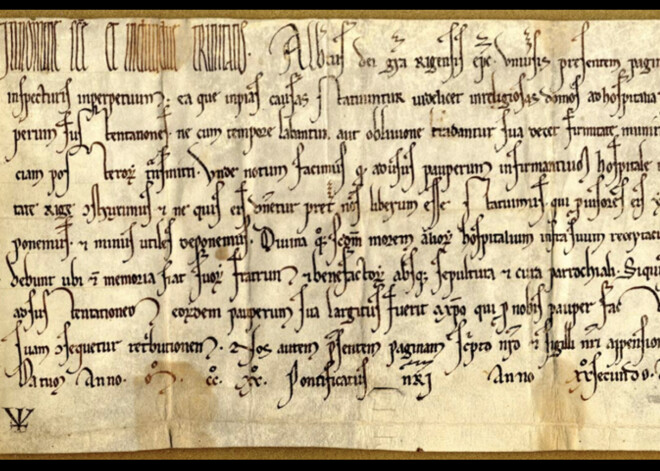 In nomine sce et individue trinitatis. Albtus dei gra Rigensis epc. Universis presentem pagin
inspecturis inperpetuum. ea que in pias causas statuuntur videlicet in religiosas domos ad hospitalia
perum sustentationem ne cum tempore labantur. aut oblivione tradantur sua decet firmitate muniri
ciam posterorum transmitti. Unde notum facimus q ad usus pauperum infirmantium hospitale i
tate Rige construximus & ne quis ei dnetur preter nos liberum esse statuimus, qui provisores eis
ponemus. & minus utiles deponemus. Divina q scdm morem alior hospitalium infra suum receptacu
debunt ubi & memoria fiat suor fratrum & benefactor absq sepultura & cura parrochiali. Siqui
ad sustentationem eordem pauperum sua largitus fuerit a xpo qui p nobis pauper fac
suam consequetur retributionem. Nos autem psentem paginam scpto nro & sigilli nri appension
Datum Anno. cc. xx. Pontificatus nri Anno xx secundo.